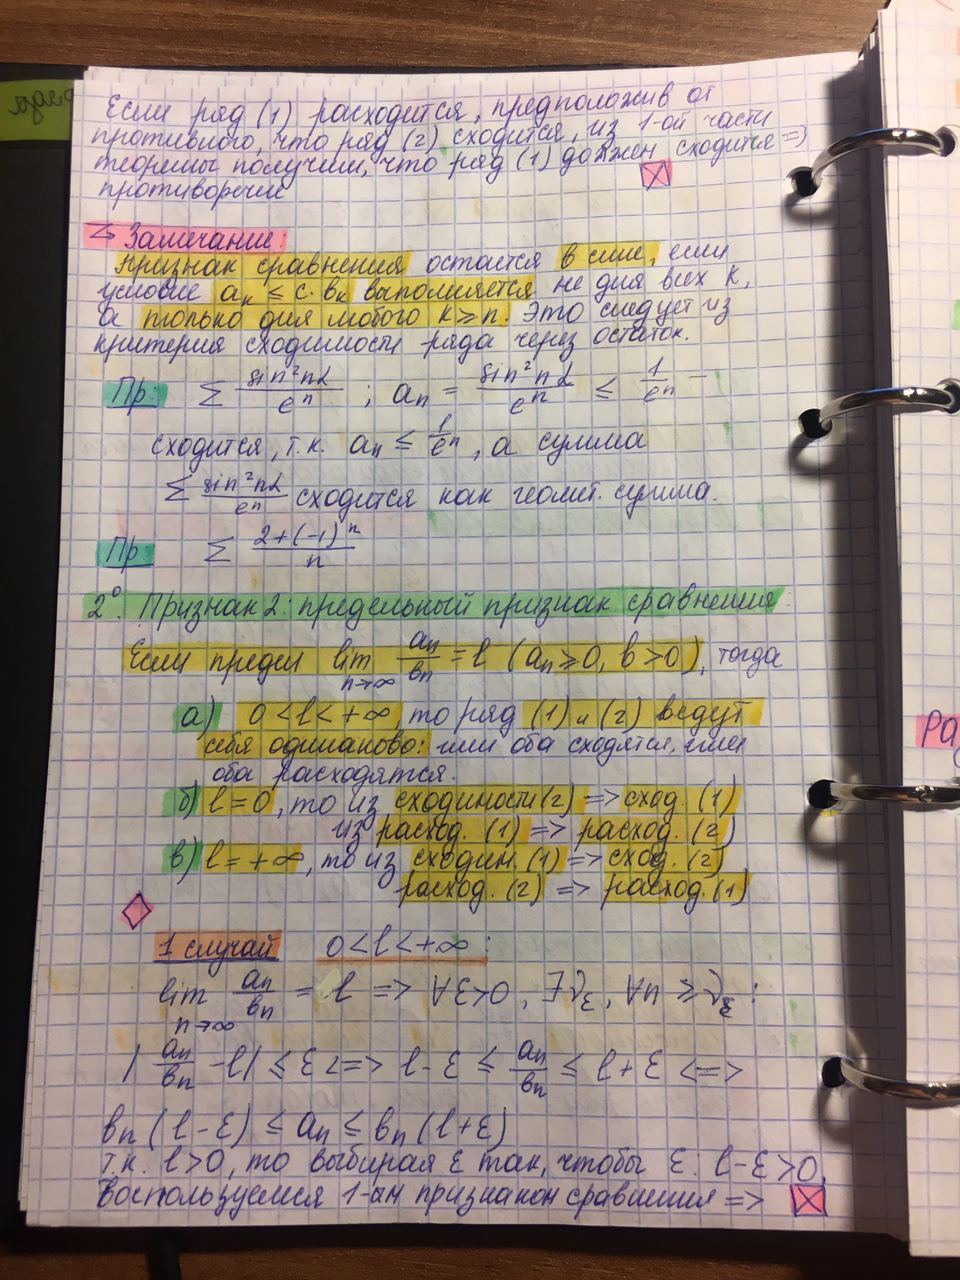 Если ряд (1) расходится, предположив от
противного, что ряд (2) сходится, из 1-ой части
теоремы получим, что ряд (1) должен сходится =>
противоречие
Замечание:
Признак сравнения остается в силе, если
условие aₖ ≤ c·bₖ выполняется не для всех k,
а только для любого k ≥ n. Это следует из
критерия сходимости ряда через остаток.
Пр: ∑ sin²nα/eⁿ ; aₙ = sin²nα/eⁿ ≤ 1/eⁿ –
сходится, т.к. aₙ ≤ 1/eⁿ, а сумма
∑ sin²nα/eⁿ сходится как геомет. сумма.
Пр ∑ (2+(-1)ⁿ)/n
2°. Признак 2: предельный признак сравнения.
Если предел lim n→∞ aₙ/bₙ = l (aₙ ≥ 0, b > 0), тогда
а) 0 < l < +∞, то ряд (1) и (2) ведут
себя одинаково: или оба сходятся, или
оба расходятся.
б) l = 0, то из сходимости (2) => сход. (1)
из расход. (1) => расход. (2)
в) l = +∞, то из сходим. (1) => сход. (2)
расход. (2) => расход. (1)
1 случай 0 < l < +∞ :
lim n→∞ aₙ/bₙ = l => ∀ε>0, ∃γε, ∀n ≥ γε :
|aₙ/bₙ - l| ≤ ε <=> l-ε ≤ aₙ/bₙ ≤ l+ε <=>
bₙ(l-ε) ≤ aₙ ≤ bₙ(l+ε)
т.к. l>0, то выбирая ε так, чтобы ε: l-ε>0,
воспользуемся 1-ым признаком сравнения =>
Ра